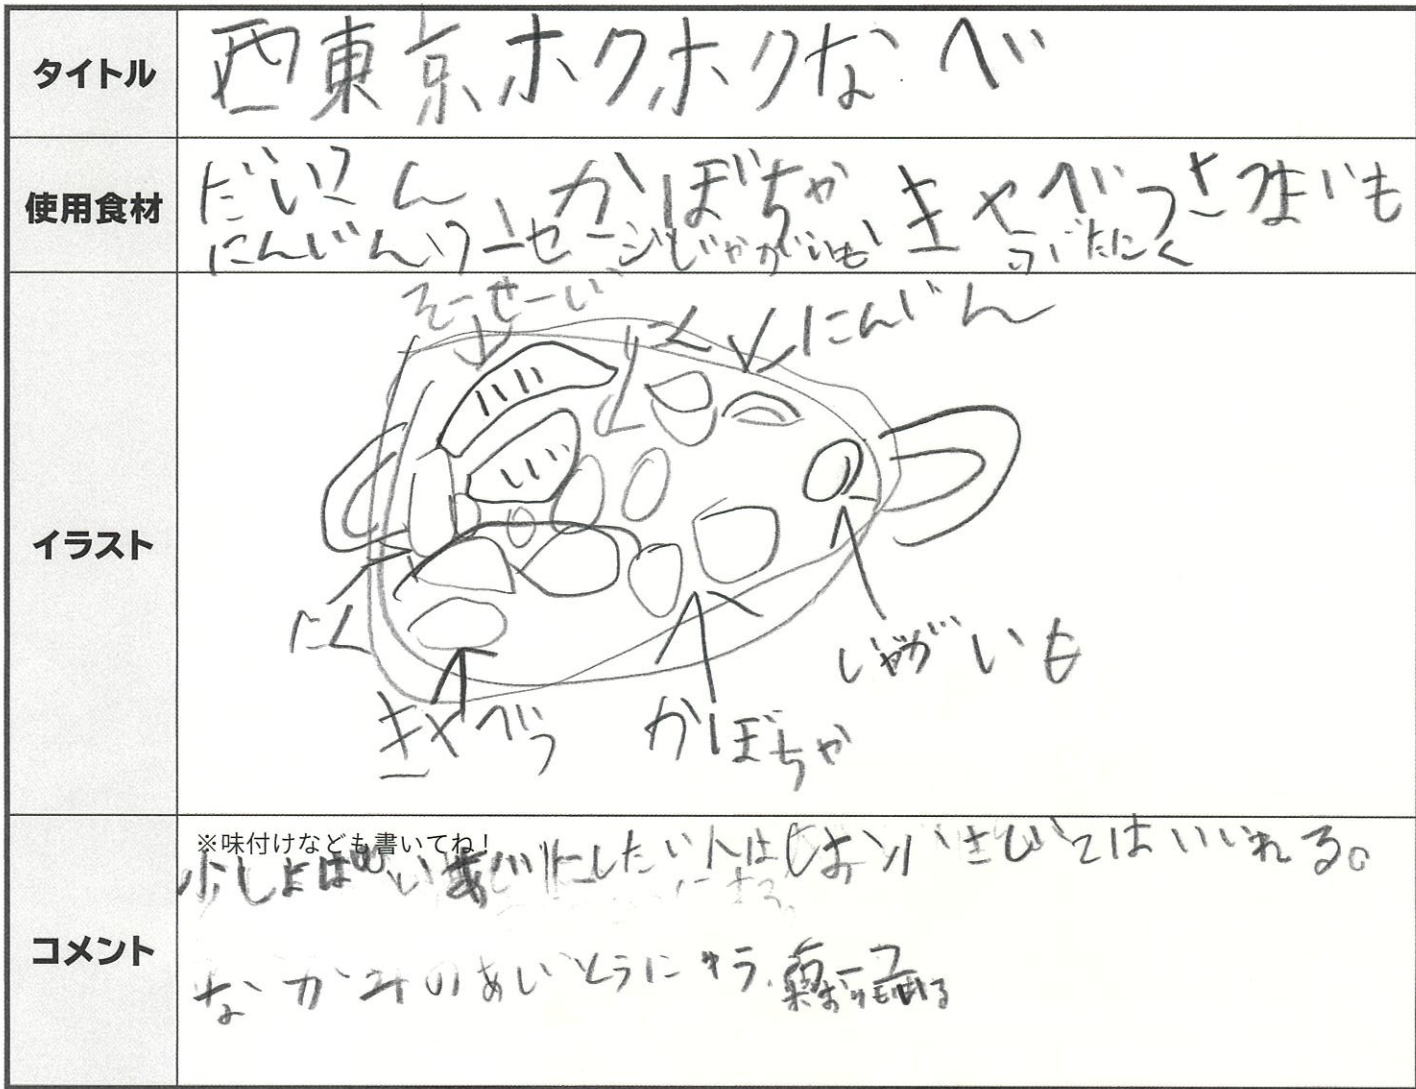 タイトル
西東京ホクホクなべ
使用食材
だいこん、かぼちゃ キャベつ さつまいも
にんじん ソーセージ じゃがいも ぶたにく
イラスト
そーせーじ
にく
にんじん
にく
じゃがいも
きゃべつ
かぼちゃ
コメント
※味付けなども書いてね!
少ししょぱい あじにしたい人は
いれる。
なかみのあじ とうにゅう